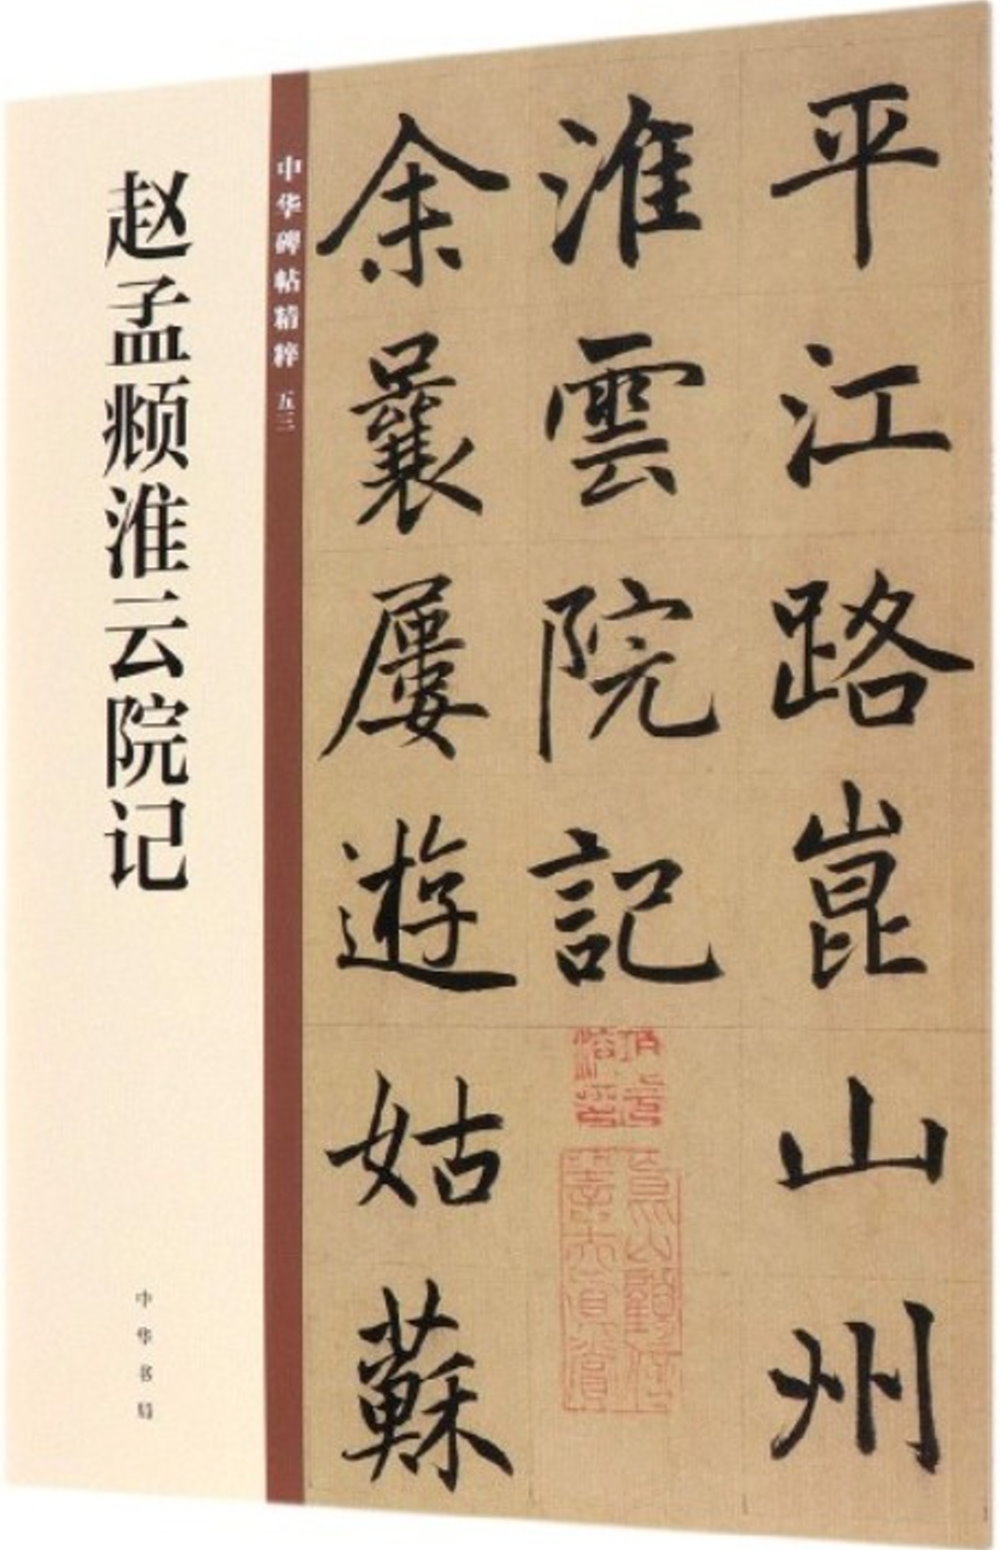 平江路崑山州
淮雲院記
余曩屢遊姑蘇
中华碑帖精粹 五三
赵孟頫淮云院记
中华书局